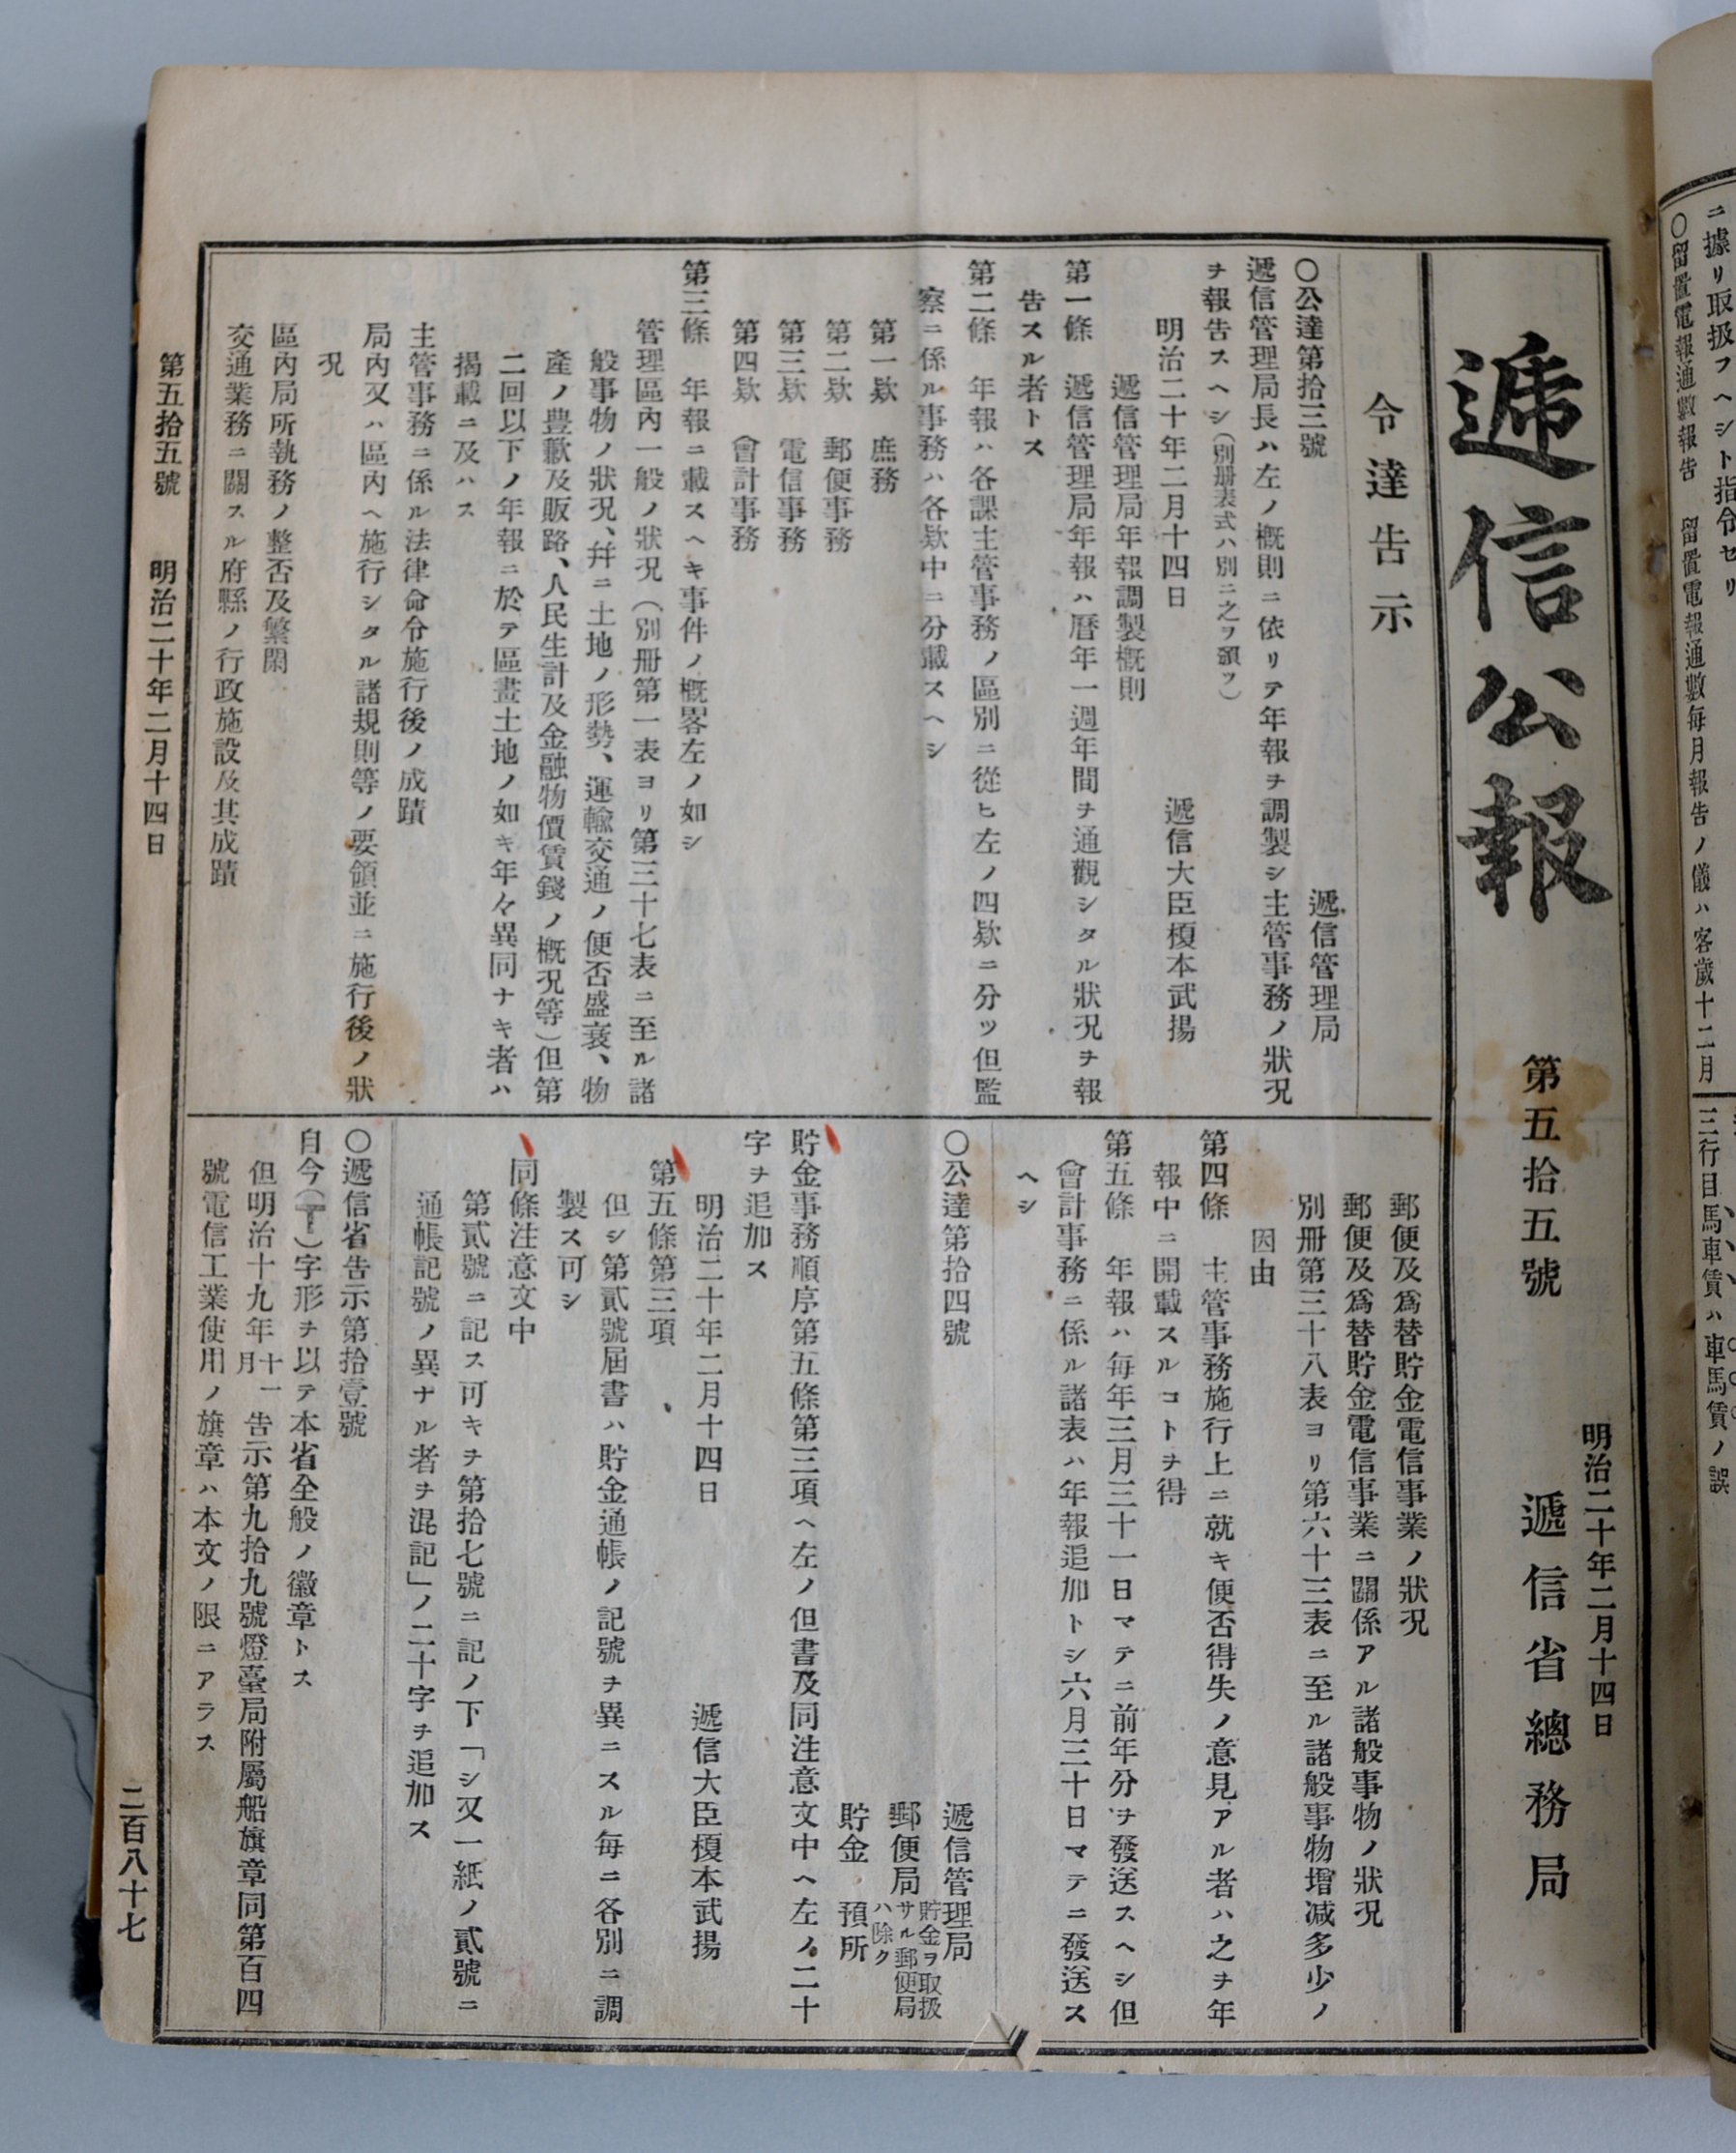 遞信公報
第五拾五號
明治二十年二月十四日
遞信省總務局
令達告示
〇公達第拾三號
遞信管理局
遞信管理局長ハ左ノ概則ニ依リテ年報ヲ調製シ主管事務ノ狀況
ヲ報告スヘシ(別册表式ハ別ニ之ヲ頒ツ)
明治二十年二月十四日
遞信大臣榎本武揚
遞信管理局年報調製概則
第一條 遞信管理局年報ハ曆年一週年間ヲ通觀シタル狀況ヲ報
告スル者トス
第二條 年報ハ各課主管事務ノ區別ニ從ヒ左ノ四欵ニ分ツ但監
察ニ係ル事務ハ各欵中ニ分載スヘシ
第一欵 庶務
第二欵 郵便事務
第三欵 電信事務
第四欵 會計事務
第三條 年報ニ載スヘキ事件ノ概畧左ノ如シ
管理區內一般ノ狀況(別册第一表ヨリ第三十七表ニ至ル諸
般事物ノ狀況、幷ニ土地ノ形勢、運輸交通ノ便否盛衰、物
產ノ豊歉及販路、人民生計及金融物價賃錢ノ概況等)但第
二回以下ノ年報ニ於テ區畫土地ノ如キ年々異同ナキ者ハ
揭載ニ及ハス
主管事務ニ係ル法律命令施行後ノ成蹟
局內又ハ區內ヘ施行シタル諸規則等ノ要領並ニ施行後ノ狀
況
區內局所執務ノ整否及繁閑
交通業務ニ關スル府縣ノ行政施設及其成蹟
郵便及爲替貯金電信事業ノ狀況
郵便及爲替貯金電信事業ニ關係アル諸般事物ノ狀況
別册第三十八表ヨリ第六十三表ニ至ル諸般事物增减多少ノ
因由
第四條 主管事務施行上ニ就キ便否得失ノ意見アル者ハ之ヲ年
報中ニ開載スルコトヲ得
第五條 年報ハ每年三月三十一日マテニ前年分ヲ發送スヘシ但
會計事務ニ係ル諸表ハ年報追加トシ六月三十日マテニ發送ス
ヘシ
〇公達第拾四號
遞信管理局
郵便局 貯金ヲ取扱サル郵便局ハ除ク
貯金預所
貯金事務順序第五條第三項ヘ左ノ但書及同注意文中ヘ左ノ二十
字ヲ追加ス
明治二十年二月十四日
遞信大臣榎本武揚
第五條第三項
但シ第貳號屆書ハ貯金通帳ノ記號ヲ異ニスル每ニ各別ニ調
製ス可シ
同條注意文中
第貳號ニ記ス可キヲ第拾七號ニ記ノ下「シ又一紙ノ貳號ニ
通帳記號ノ異ナル者ヲ混記」ノ二十字ヲ追加ス
〇遞信省告示第拾壹號
自今(〒)字形ヲ以テ本省全般ノ徽章トス
但明治十九年十一月告示第九拾九號燈臺局附屬船旗章同第百四
號電信工業使用ノ旗章ハ本文ノ限ニアラス
第五拾五號 明治二十年二月十四日
二百八十七
ニ據リ取扱フヘシト指令セリ
〇留置電報通數報告 留置電報通數每月報告ノ儀ハ客歲十二月
三行目馬車賃ハ車馬賃ノ誤